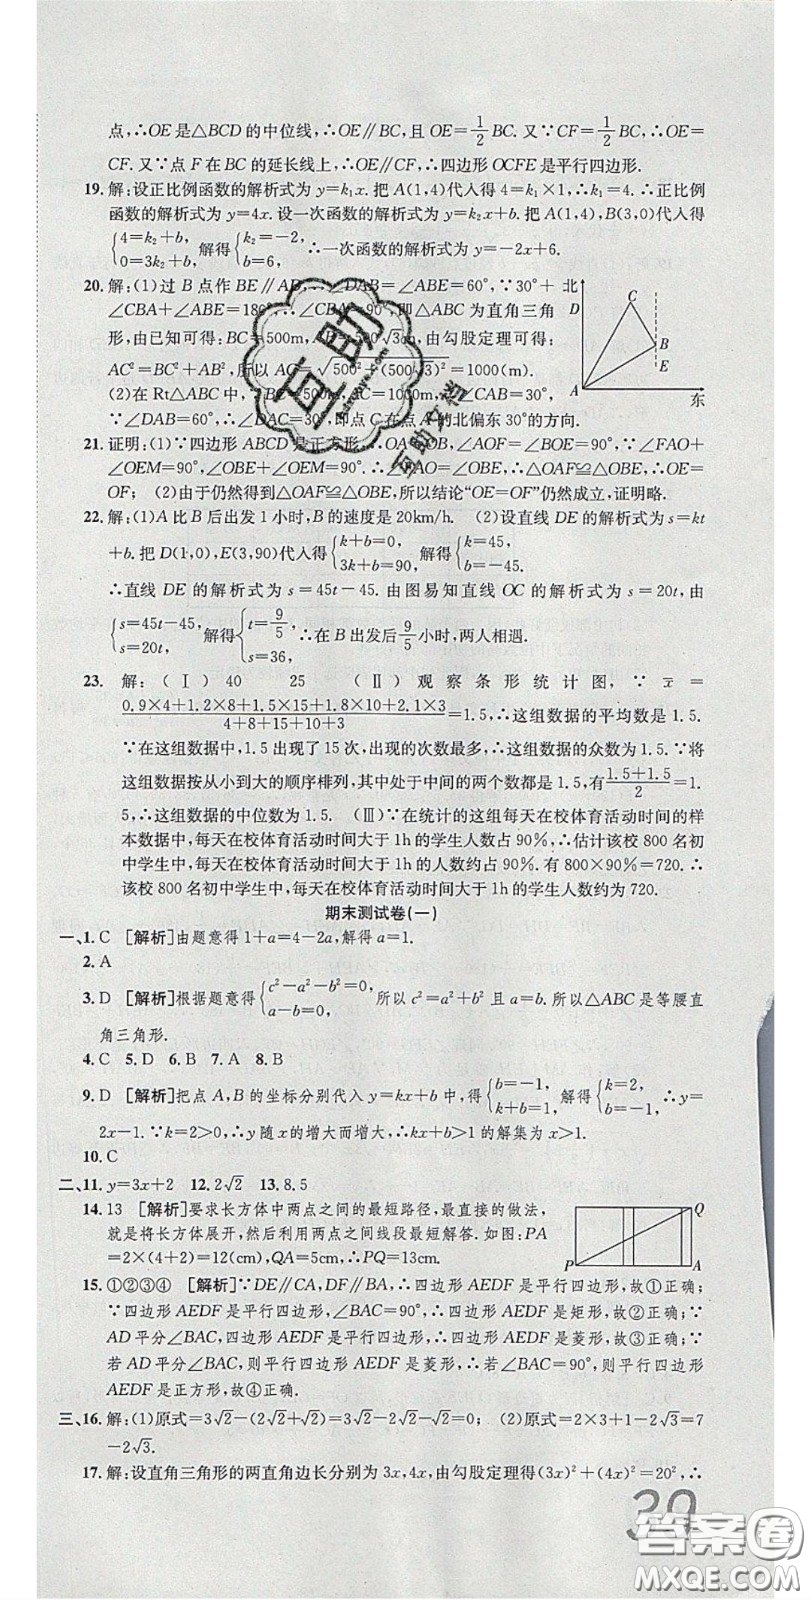 点,∴OE是△BCD的中位线,∴OE∥BC,且OE=1/2 BC. 又∵CF=1/2 BC,∴OE=
CF. 又∵点F在BC的延长线上,∴OE∥CF,∴四边形OCFE是平行四边形.
19. 解:设正比例函数的解析式为y=k₁x. 把A(1,4)代入得4=k₁×1,∴k₁=4. ∴正比例
函数的解析式为y=4x. 设一次函数的解析式为y=k₂x+b. 把A(1,4),B(3,0)代入得
{4=k₂+b, 0=3k₂+b, 解得{k₂=-2, b=6. ∴一次函数的解析式为y=-2x+6.
20. 解:(1)过B点作BE∥AD, ∴∠DAB=∠ABE=60°,∵30°+
∠CBA+∠ABE=180°,∴∠CBA=90°,即△ABC为直角三角
形,由已知可得:BC=500m,AB=500√3m,由勾股定理可得:
AC²=BC²+AB²,所以AC=√(500²+(500√3)²)=1000(m).
(2)在Rt△ABC中,∵BC=500m,AC=1000m,∴∠CAB=30°,
∵∠DAB=60°,∴∠DAC=30°,即点C在点A的北偏东30°的方向.
北
D
C
B
E
A
东
21. 证明:(1)∵四边形ABCD是正方形,∴OA=OB,∠AOF=∠BOE=90°,∵∠FAO+
∠OEM=90°,∠OBE+∠OEM=90°,∴∠FAO=∠OBE,∴△OAF≌△OBE,∴OE=
OF; (2)由于仍然得到△OAF≌△OBE,所以结论“OE=OF”仍然成立,证明略.
22. 解:(1)A比B后出发1小时,B的速度是20km/h. (2)设直线DE的解析式为s=kt
+b. 把D(1,0),E(3,90)代入得{k+b=0, 3k+b=90, 解得{k=45, b=-45.
∴直线DE的解析式为s=45t-45. 由图易知直线OC的解析式为s=20t,由
{s=45t-45, s=20t, 解得{t=9/5, s=36, ∴在B出发后9/5小时,两人相遇.
23. 解:(Ⅰ)40 25 (Ⅱ)观察条形统计图,∵x̄=
(0.9×4+1.2×8+1.5×15+1.8×10+2.1×3)/(4+8+15+10+3)=1.5,∴这组数据的平均数是1.5.
∵在这组数据中,1.5出现了15次,出现的次数最多,∴这组数据的众数为1.5. ∵将
这组数据按从小到大的顺序棑列,其中处于中间的两个数都是1.5,有(1.5+1.5)/2=1.
5,∴这组数据的中位数为1.5. (Ⅲ)∵在统计的这组每天在校体育活动时间的样
本数据中,每天在校体育活动时间大于1h的学生人数占90%,∴估计该校800名初
中学生中,每天在校体育活动时间大于1h的人数约占90%. 有800×90%=720. ∴
该校800名初中学生中,每天在校体育活动时间大于1h的学生人数约为720.
期末测试卷(一)
一、1. C [解析]由题意得1+a=4-2a,解得a=1.
2. A
3. D [解析]根据题意得{c²-a²-b²=0, a-b=0, 所以c²=a²+b²且a=b. 所以△ABC是等腰直
角三角形.
4. C 5. D 6. B 7. A 8. B
9. D [解析]把点A,B的坐标分别代入y=kx+b中,得{b=-1, k+b=1, 解得{k=2, b=-1, ∴y=
2x-1. ∵k=2>0,∴y随x的增大而增大,∴kx+b>1的解集为x>1.
10. C
二、11. y=3x+2 12. 2√2 13. 8.5
14. 13 [解析]要求长方体中两点之间的最短路径,最直接的做法,
就是将长方体展开,然后利用两点之间线段最短解答. 如图:PA
=2×(4+2)=12(cm),QA=5cm,∴PQ=13cm.
Q
P
A
15. ①②③④ [解析]∵DE∥CA,DF∥BA,∴四边形AEDF是平行四边形,故①正确;
∵四边形AEDF是平行四边形,∠BAC=90°,∴四边形AEDF是矩形,故②正确;∵
AD平分∠BAC,四边形AEDF是平行四边形,∴四边形AEDF是菱形,故③正确;∵
若AD平分∠BAC,则平行四边形AEDF是菱形,∴若∠BAC=90°,则平行四边形
AEDF是正方形,故④正确.
三、16. 解:(1)原式=3√2-(2√2+√2)=3√2-2√2-√2=0; (2)原式=2×3+1-2√3=7
-2√3.
17. 解:设直角三角形的两直角边长分别为3x,4x,由勾股定理得(3x)²+(4x)²=20²,∴
互助
互助文档
答案圈
MXQE.COM